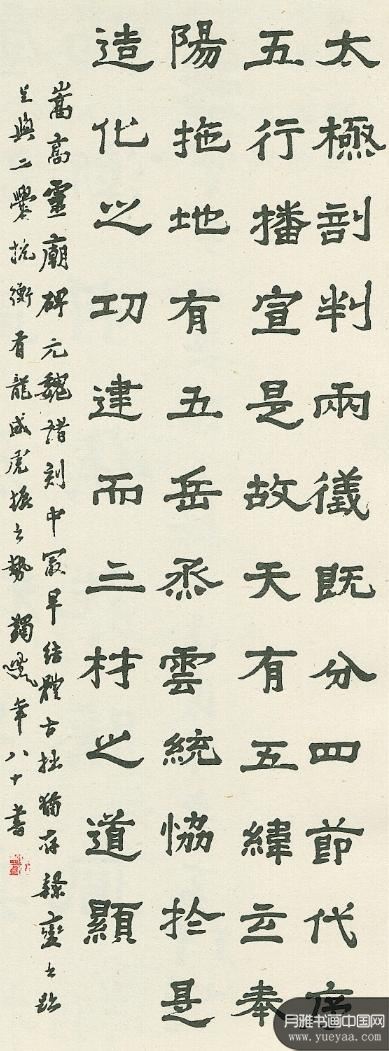 太極剖判兩儀既分四節代序
五行播宣是故天有五緯立奉
陽拖地有五岳烝雲統恊於是
造化之功建而三材之道顯
嵩高靈廟碑元魏諸刻中最早結體古拙猶存隸變之跡
足與二爨抗衡有龍威虎振之勢 蠲叟年八十書
月雅书画中国网
www.yueyaa.com